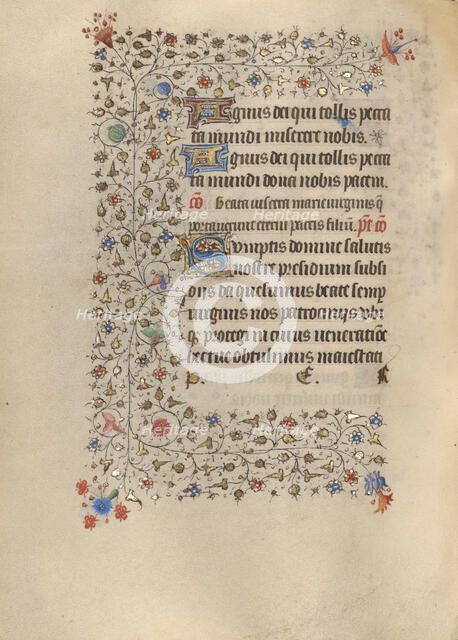 Agnus dei qui tollis pecca
ta mundi miserere nobis.
Agnus dei qui tollis pecca
ta mundi dona nobis pacem.
cō Beata viscera marie virginis q̄
portaverunt eterni patris filiū. pt cō
Sumptis domine salutis
nostre presidium subsi
diis da quesumus beate semꝑ
virginis nos patrociniis ubi
qꝫ protegi in cuius veneratiōe
hec tue obtulimus maiestati
Heritage
Heritage
Heritage
Heritage
Heritage
Heritage
Heritage